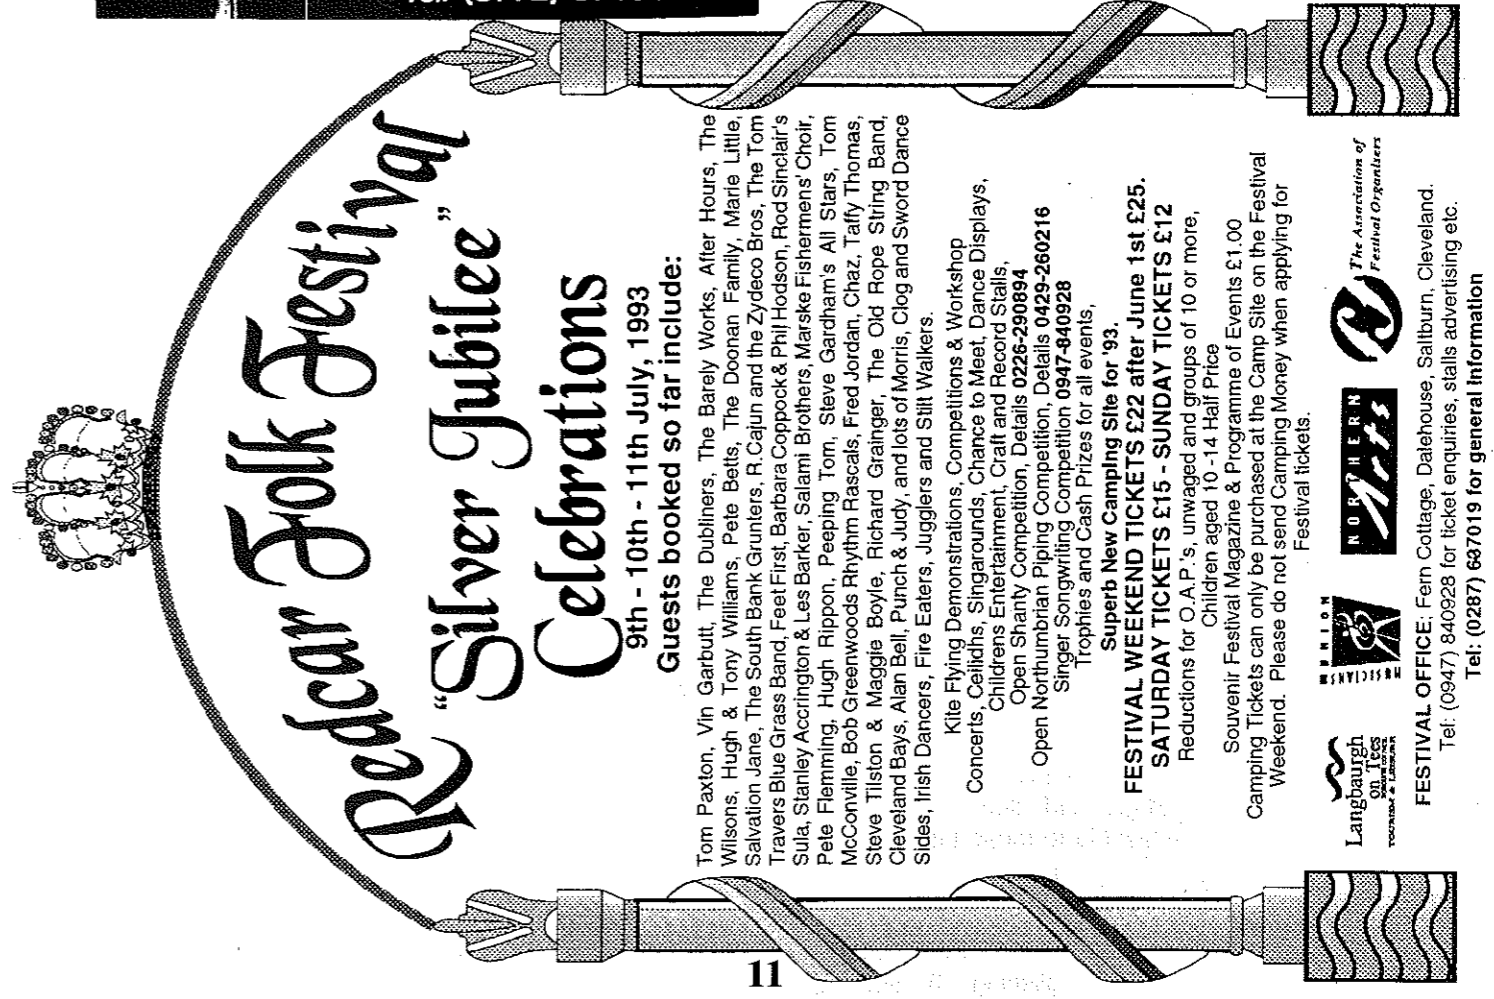 Redcar Folk Festival
"Silver Jubilee"
Celebrations
9th - 10th - 11th July, 1993
Guests booked so far include:
Tom Paxton, Vin Garbutt, The Dubliners, The Barely Works, After Hours, The
Wilsons, Hugh & Tony Williams, Pete Betts, The Doonan Family, Marie Little,
Salvation Jane, The South Bank Grunters, R.Cajun and the Zydeco Bros, The Tom
Travers Blue Grass Band, Feet First, Barbara Coppock & Phil Hodson, Rod Sinclair's
Sula, Stanley Accrington & Les Barker, Salami Brothers, Marske Fishermens' Choir,
Pete Flemming, Hugh Rippon, Peeping Tom, Steve Gardham's All Stars, Tom
McConville, Bob Greenwoods Rhythm Rascals, Fred Jordan, Chaz, Taffy Thomas,
Steve Tilston & Maggie Boyle, Richard Grainger, The Old Rope String Band,
Cleveland Bays, Alan Bell, Punch & Judy, and lots of Morris, Clog and Sword Dance
Sides, Irish Dancers, Fire Eaters, Jugglers and Stilt Walkers.
Kite Flying Demonstrations, Competitions & Workshop
Concerts, Ceilidhs, Singarounds, Chance to Meet, Dance Displays,
Childrens Entertainment, Craft and Record Stalls,
Open Shanty Competition, Details 0226-290894
Open Northumbrian Piping Competition, Details 0429-260216
Singer Songwriting Competition 0947-840928
Trophies and Cash Prizes for all events,
Superb New Camping Site for '93.
FESTIVAL WEEKEND TICKETS £22 after June 1st £25.
SATURDAY TICKETS £15 - SUNDAY TICKETS £12
Reductions for O.A.P.'s, unwaged and groups of 10 or more,
Children aged 10 -14 Half Price
Souvenir Festival Magazine & Programme of Events £1.00
Camping Tickets can only be purchased at the Camp Site on the Festival
Weekend. Please do not send Camping Money when applying for
Festival tickets.
Langbaurgh
on Tees
BOROUGH COUNCIL
TOURISM & LEISURE
MUSICIANS UNION
NORTHERN
Arts
The Association of
Festival Organisers
FESTIVAL OFFICE: Fern Cottage, Dalehouse, Saltburn, Cleveland.
Tel: (0947) 840928 for ticket enquiries, stalls advertising etc.
Tel: (0287) 637019 for general Information
11